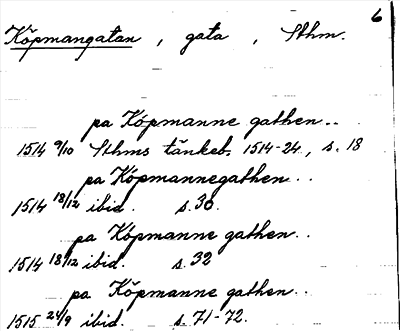 6
Köpmangatan, gata, Sthm.
pa Köpmanne gathen..
1514 9/10 Sthms tänkeb. 1514-24, s. 18
pa Köpmannegathen..
1514 18/12 ibid. s. 30.
pa Köpmanne gathen..
1514 18/12 ibid. s. 32
pa Köpmanne gathen..
1515 24/9 ibid. s. 71-72.